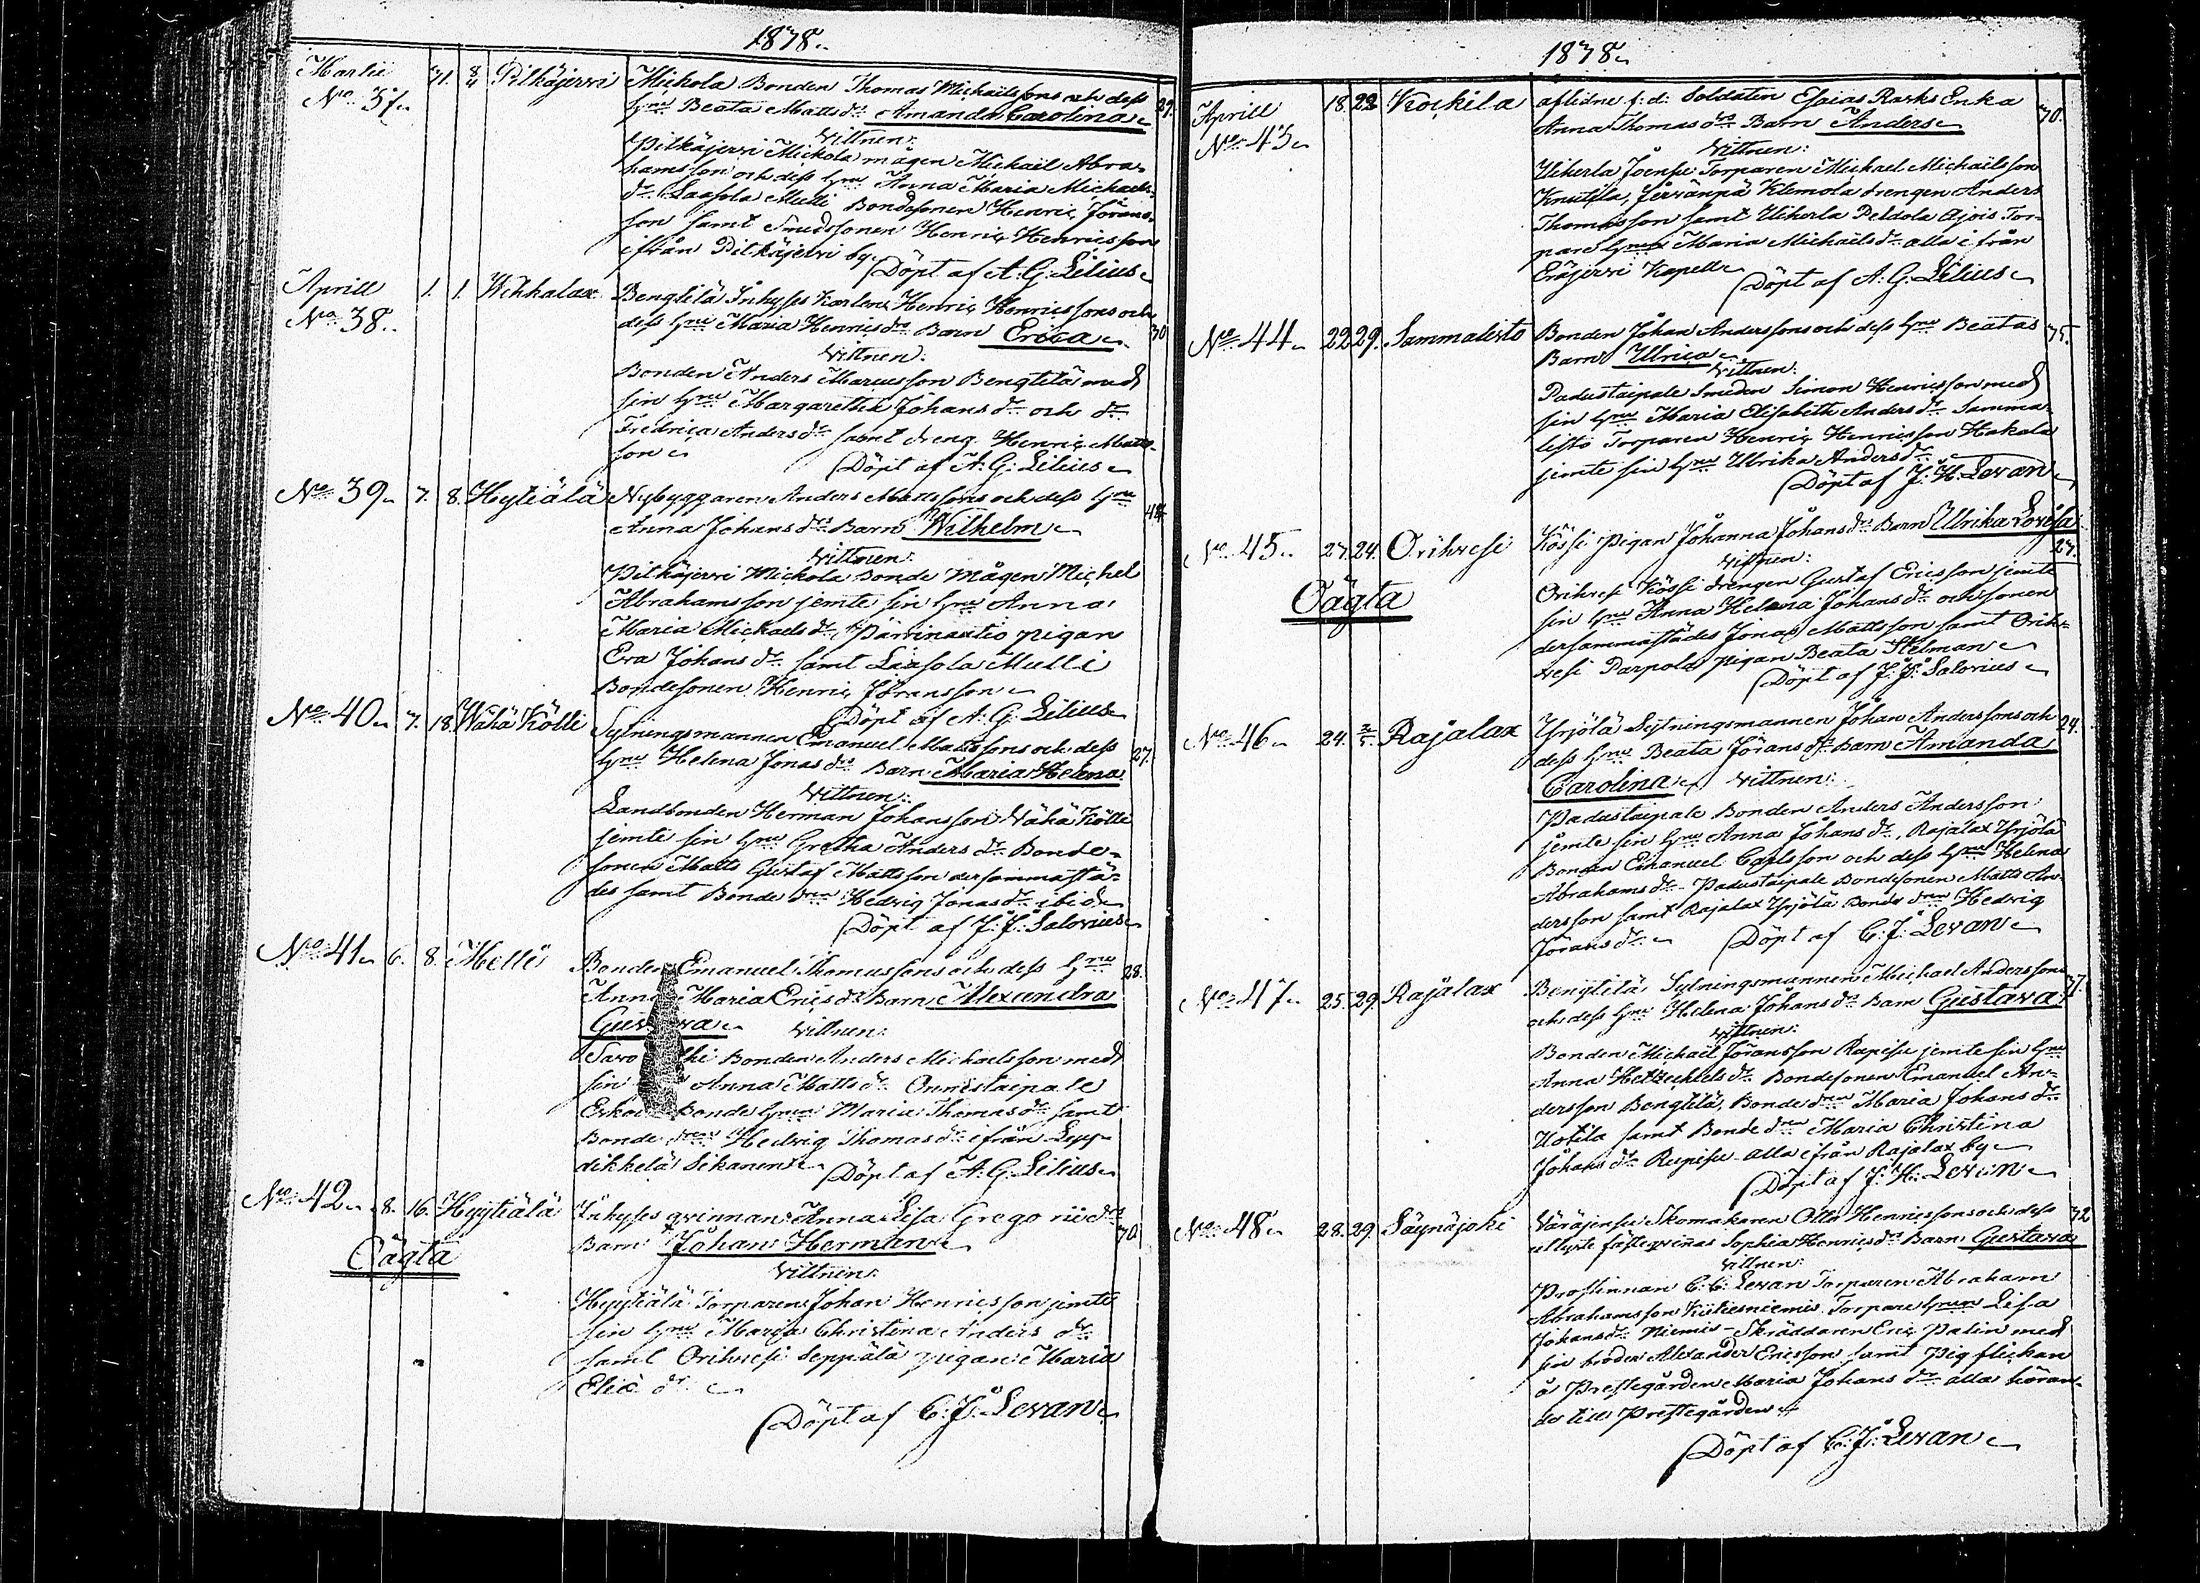 1878.
Martii 31. 8/4 Pilkäjervi Mickola Bonden Thomas Michaelssons och dess 29.
No 37. Hru Beata Matts dr Amanda Carolina
Vittnen:
Pilkäjervi Mickola mågen Michaël Abra-
hamsson och dess Hru Anna Maria Michaels
dr Laasola Mulli Bondesonen Henric Jörans-
son samt Smedssonen Henric Henricsson
ifrån Pilkäjervi by.
Döpt af A. G. Lilius
Aprill 1. 1. Wehkalax Bengtilä Inhyses Karlen Henric Henricssons och
No 38. dess Hru Maria Henrics drs Barn Erica 30
Vittnen:
Bonden Anders Marcusson Bengtilä med
sin Hru Margaretha Johans dr och dr
Fredrica Anders dr samt dreng Henric Matts-
son
Döpt af A. G. Lilius
No 39 7. 8. Hytiälä Nybyggaren Anders Mattssons och dess Hru
Anna Johans drs Barn Wilhelm
Vittnen:
Pilkäjervi Mickola Bonde Mågen Michel
Abrahamsson jemte sin Hru Anna
Maria Michaels dr, Pärrinaxtio pigan
Eva Johans dr samt Laasola Mulli
Bondesonen Henric Jöransson
Döpt af A. G. Lilius
No 40 7. 18. Wähä Kölli Sytningsmannen Emanuel Mattssons och dess
Hru Helena Jonas drs Barn Maria Helena 27.
Vittnen:
Landbonden Herman Johansson Wähä Kölli
jemte sin Hru Gretha Anders dr Bonde-
sonen Matts Gustaf Mattsson dersammastä-
des samt Bonde dren Hedvig Jonas dr ibid
Döpt af J. F. Salovius
No 41 6. 8. Helli Bonden Emanuel Thomassons och dess Hru 28.
Anna Maria Erics drs Barn Alexandra
Gustava Vittnen:
Bonden Anders Michaelsson med
sin Anna Matts dr Onnistaipale
Bonde Hrun Maria Thomas dr samt
Bonde dren Hedvig Thomas dr ifrån Lyy-
dikkelä Sikanen
Döpt af A. G. Lilius
No 42 8. 16. Hyytiälä Inhyses qvinnan Anna Lisa Gregorii drs
Oägta Barn Johan Herman 70
Vittnen:
Hyytiälä Torparen Johan Henricsson jemte
sin Hru Maria Christina Anders dr
samt Orihvesi Seppälä pigan Maria
Elia dr
Döpt af C. J. Levan
1878
Aprill 18. 22 Kockila aflidne f: d: Soldaten Esaias Rasks Enka
No 43 Anna Thomas drs Barn Anders 70.
Vittnen:
Uiherla Joensu Torparen Michael Michaelsson
Knutila, Järvänpä Klemola drengen Anders
Thomasson samt Uiherla Peldola Ajois Tor-
pare Hrun Maria Michaels dr alla ifrån
Eräjervi Kapell
Döpt af A. G. Lilius
No 44 22 29. Sammalisto Bonden Johan Anderssons och dess Hru Beatas 35.
Barn Ulrica
Vittnen:
Padustaipale Smeden Simon Henricsson med
sin Hru Maria Elisabeth Anders dr Samma-
listo Torparen Henric Henricsson Hakala
jemte sin Hru Ulrika Anders dr
Döpt af J. H. Levan
No 45 23. 24. Orihvesi Kössi Pigan Johanna Johans drs Barn Ulrika Lovisa
Oägta Vittnen: 27.
Orihvesi Kössi drengen Gustaf Ericsson jemte
sin Hru Anna Helena Johans dr och sonen
dersammastädes Jonas Mattsson samt Orih-
vesi Parpola pigan Beata Stelman
Döpt af J. F. Salovius
No 46 24. 2/5. Rajalax Yrjölä Sytningsmannen Johan Anderssons och 24.
dess Hru Beata Jörans drs Barn Amanda
Carolina Vittnen:
Padustaipale Bonden Anders Andersson
jemte sin Hru Anna Johans dr, Rajalax Yrjölä
Bonden Emanuel Carlsson och dess Hru Helena
Abrahams dr Padustaipale Bondesonen Matts An-
dersson samt Rajalax Yrjölä Bonde dren Hedvig
Jörans dr
Döpt af C. J. Levan
No 47 25. 29. Rajalax Bengtilä Sytningsmannen Michael Anderssons 37.
och dess Hru Helena Johans drs Barn Gustava
Vittnen:
Bonden Michaël Jöransson Rapisu jemte sin Hru
Anna Hetzechiels dr Bondesonen Emanuel An-
dersson Bengtilä, Bonde dren Maria Johans dr
Kotila samt Bonde dren Maria Christina
Johans dr Repisu alla ifrån Rajalax by
Döpt af J. H. Levan
No 48 28. 29. Säynäjoki Väräjensu Skomakaren Otto Henricssons och dess 32
utlyste fästeqvinnas Sophia Henrics drs Barn Gustava
Vittnen:
Prostinnan C. C. Levan Torparen Abraham
Abrahamsson Kutiesniemis Torpare Hrun Lisa
Johans dr Niemis Skräddaren Eric Palin med
sin broder Alexander Ericsson samt Pig flickan
å Prestegården Maria Johans dr alla höran-
de till Prestegården
Döpt af C. J. Levan